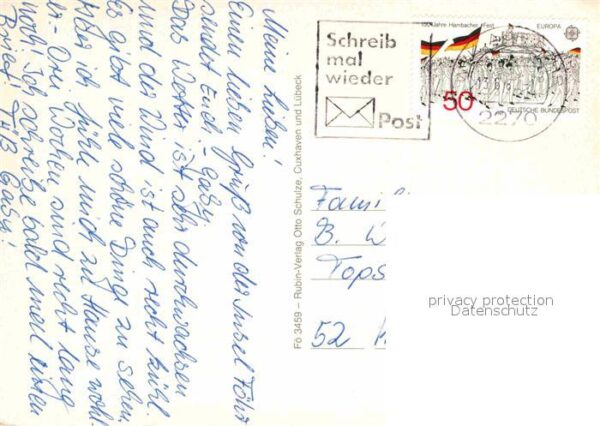 Meine Lieben!
Einen lieben Gruß von der Insel Föhr
sendet Euch Gaby.
Das Wetter ist sehr durchwachsen
und der Wind ist auch recht kühl.
Es gibt viele schöne Dinge zu sehen.
Aber ich fühle mich zu Hause wohl-
er. Drei Wochen sind recht lang
noch. Ich schreibe bald mal einen
Brief! Tüß Gaby!
Fö 3459 – Rubin-Verlag Otto Schulze, Cuxhaven und Lübeck
Schreib
mal
wieder
Post
150 Jahre Hambacher Fest
EUROPA
50
DEUTSCHE BUNDESPOST
2270
Famili
B.
Tops
52
privacy protection
Datenschutz